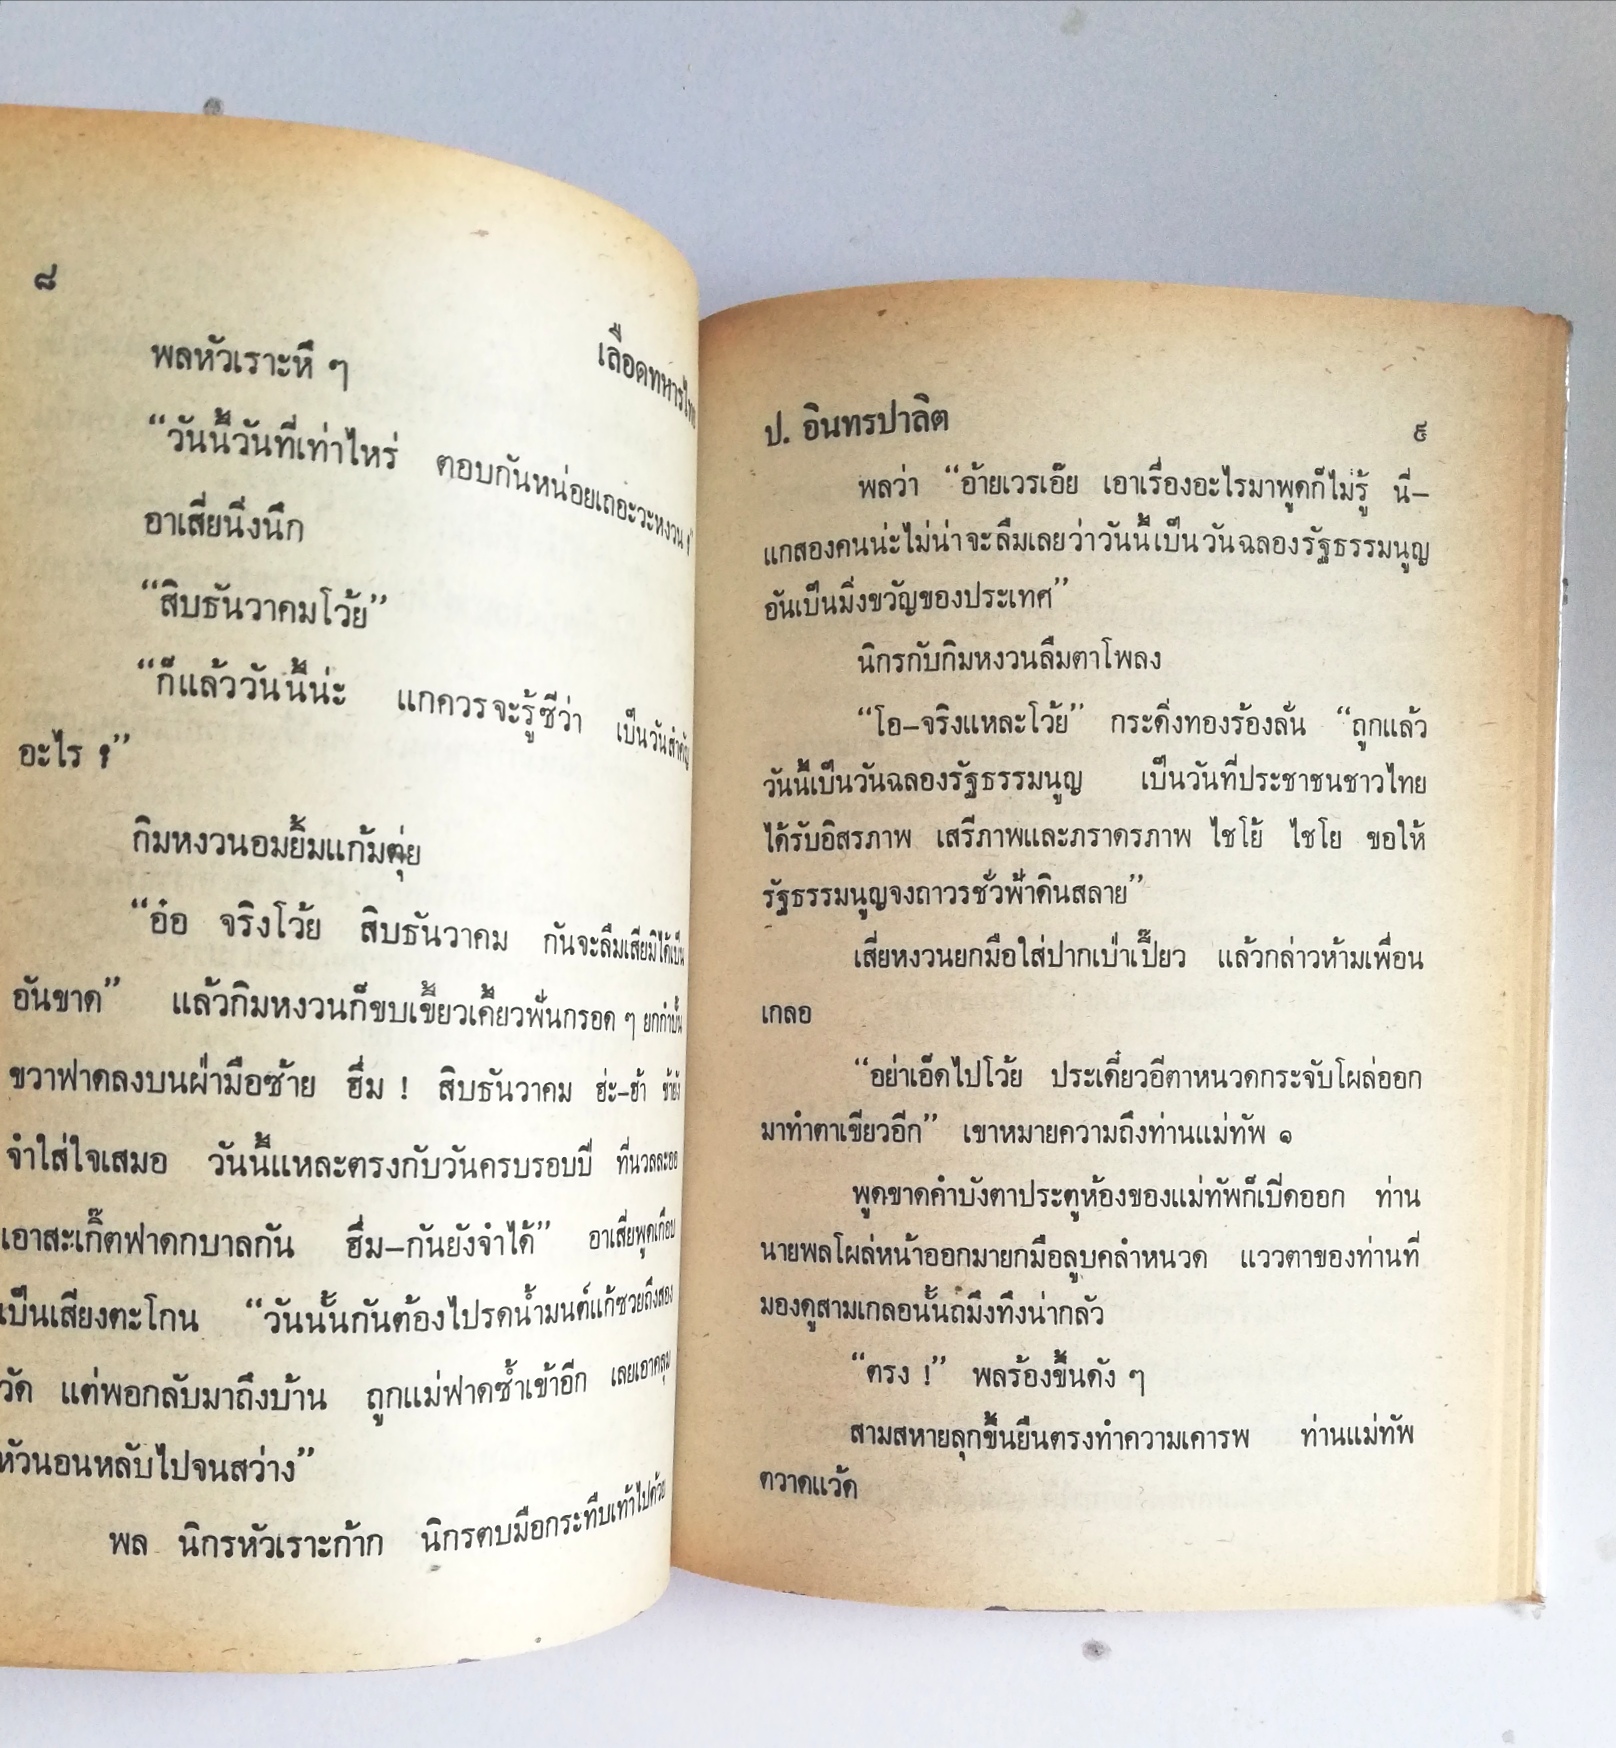 ๘
เลือดทหารไทย
พลหัวเราะหึ ๆ
“วันนี้วันที่เท่าไหร่ ตอบกันหน่อยเถอะวะหงวน ?”
อาเสี่ยนิ่งนึก
“สิบธันวาคมโว้ย”
“ก็แล้ววันนี้น่ะ แกควรจะรู้ซีว่า เป็นวันสำคัญ
อะไร ?”
กิมหงวนอมยิ้มแก้มตุ่ย
“อ๋อ จริงโว้ย สิบธันวาคม กันจะลืมเสียมิได้เป็น
อันขาด” แล้วกิมหงวนก็ขบเขี้ยวเคี้ยวฟันกรอด ๆ ยกกำปั้น
ขวาฟาดลงบนฝ่ามือซ้าย ฮึ่ม ! สิบธันวาคม ฮ่ะ-ฮ้า ข้ายัง
จำใส่ใจเสมอ วันนี้แหละตรงกับวันครบรอบปี ที่นวลละออ
เอาสะเกิ๊ตฟาดกบาลกัน ฮึ่ม-กันยังจำได้” อาเสี่ยพูดเกือบ
เป็นเสียงตะโกน “วันนั้นกันต้องไปรดน้ำมนต์แก้ซวยถึงสอง
วัด แต่พอกลับมาถึงบ้าน ถูกแม่ฟาดซ้ำเข้าอีก เลยเอาคลุม
หัวนอนหลับไปจนสว่าง”
พล นิกรหัวเราะก้าก นิกรตบมือกระทืบเท้าไปด้วย
ป. อินทรปาลิต
๙
พลว่า “อ้ายเวรเอ๊ย เอาเรื่องอะไรมาพูดก็ไม่รู้ นี่-
แกสองคนน่ะไม่น่าจะลืมเลยว่าวันนี้เป็นวันฉลองรัฐธรรมนูญ
อันเป็นมิ่งขวัญของประเทศ”
นิกรกับกิมหงวนลืมตาโพลง
“โอ-จริงแหละโว้ย” กระดิ่งทองร้องลั่น “ถูกแล้ว
วันนี้เป็นวันฉลองรัฐธรรมนูญ เป็นวันที่ประชาชนชาวไทย
ได้รับอิสรภาพ เสรีภาพและภราดรภาพ ไชโย้ ไชโย ขอให้
รัฐธรรมนูญจงถาวรชั่วฟ้าดินสลาย”
เสี่ยหงวนยกมือใส่ปากเป่าเปี๊ยว แล้วกล่าวห้ามเพื่อน
เกลอ
“อย่าเอ็ดไปโว้ย ประเดี๋ยวอีตาหนวดกระจับโผล่ออก
มาทำตาเขียวอีก” เขาหมายความถึงท่านแม่ทัพ ๑
พูดขาดคำบังตาประตูห้องของแม่ทัพก็เปิดออก ท่าน
นายพลโผล่หน้าออกมายกมือลูบคลำหนวด แววตาของท่านที่
มองดูสามเกลอนั้นถมึงทึงน่ากลัว
“ตรง !” พลร้องขึ้นดัง ๆ
สามสหายลุกขึ้นยืนตรงทำความเคารพ ท่านแม่ทัพ
ตวาดแว้ด